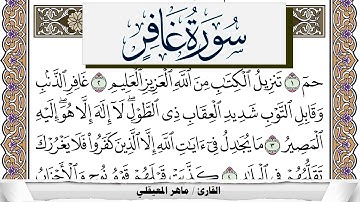 سُورَةُ غَافِرٍ
حمٓ ١ تَنزِيلُ ٱلْكِتَٰبِ مِنَ ٱللَّهِ ٱلْعَزِيزِ ٱلْعَلِيمِ ٢ غَافِرِ ٱلذَّنۢبِ
وَقَابِلِ ٱلتَّوْبِ شَدِيدِ ٱلْعِقَابِ ذِى ٱلطَّوْلِ لَآ إِلَٰهَ إِلَّا هُوَ إِلَيْهِ
ٱلْمَصِيرُ ٣ مَا يُجَٰدِلُ فِىٓ ءَايَٰتِ ٱللَّهِ إِلَّا ٱلَّذِينَ كَفَرُوا۟ فَلَا يَغْرُرْكَ
تَقَلُّبُهُمْ فِى ٱلْ ٤ كَذَّبَتْ قَبْلَهُمْ قَوْمُ نُوحٍ وَٱلْأَحْزَابُ
القارئ / ماهر المعيقلي